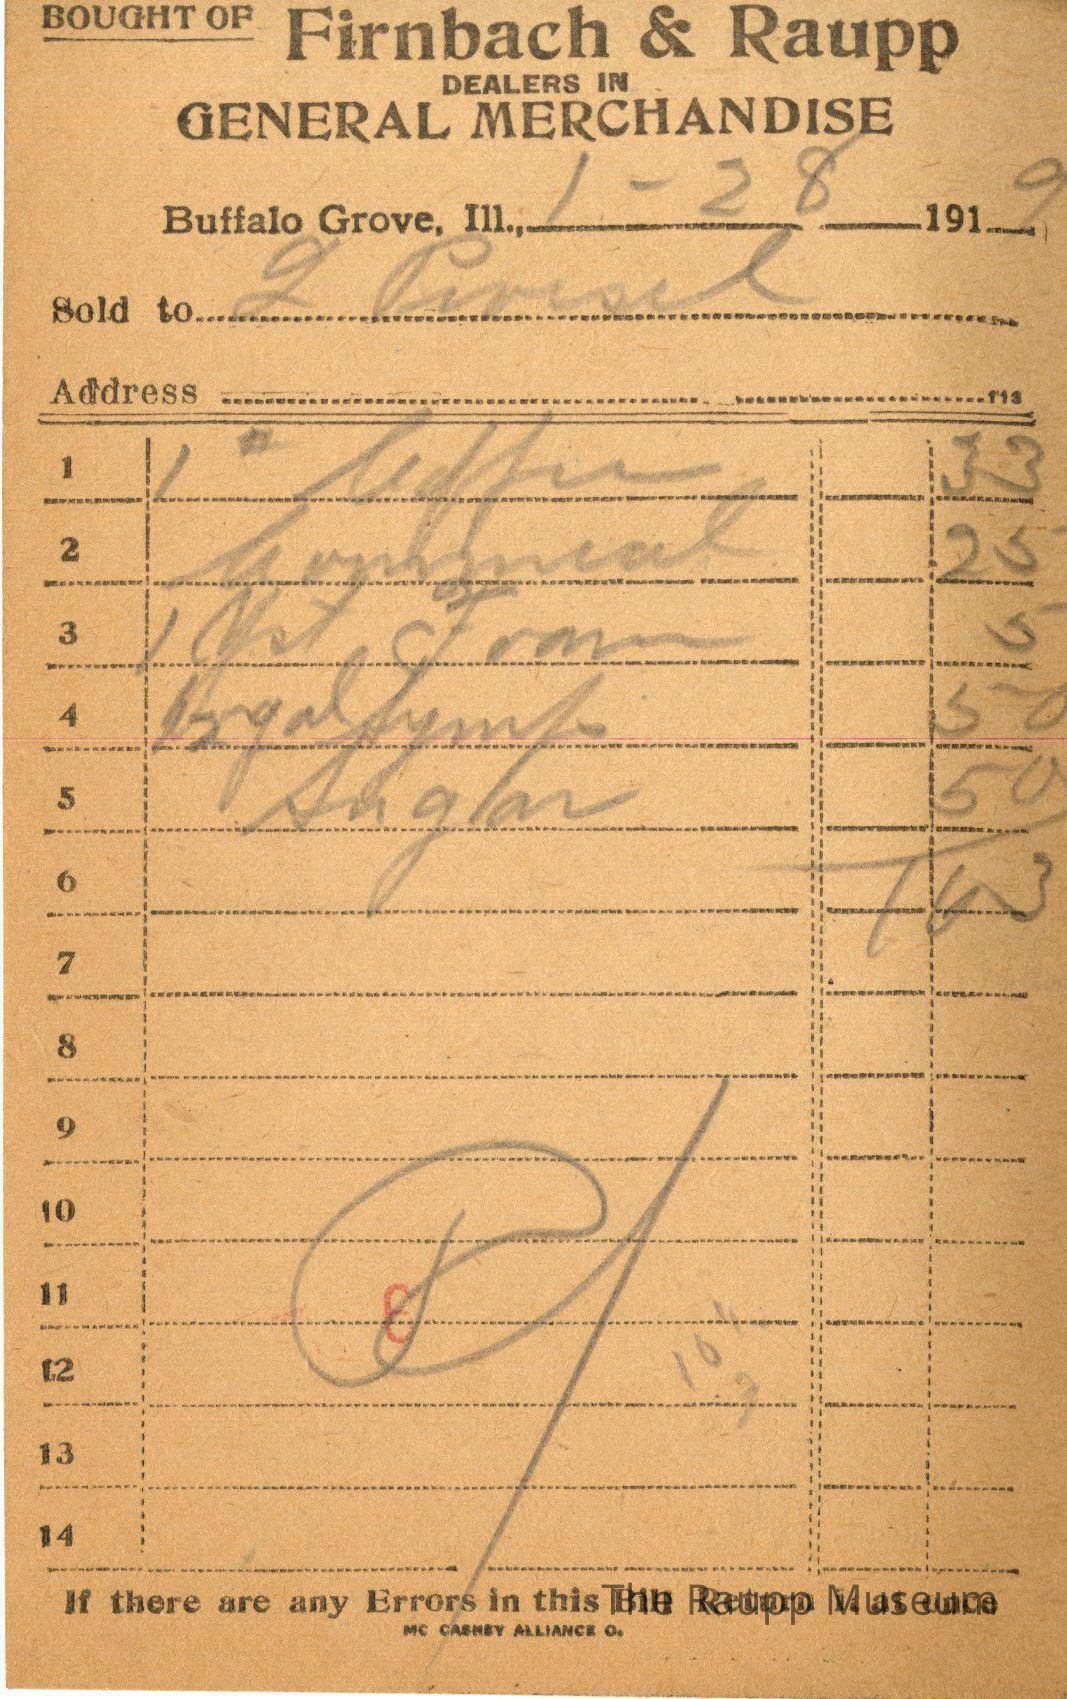 BOUGHT OF Firnbach & Raupp
DEALERS IN
GENERAL MERCHANDISE
Buffalo Grove, Ill., 1-28 1919
Sold to
Address
1 1 # Coffee 33
2 Cornmeal 25
3 1 Yst Foam 5
4 1/2 gal Syrup 50
5 Sugar 50
6 163
7
8
9
10
11
12
13
14
If there are any Errors in this Bill Return it at once
The Raupp Museum
MC CASKEY ALLIANCE O.